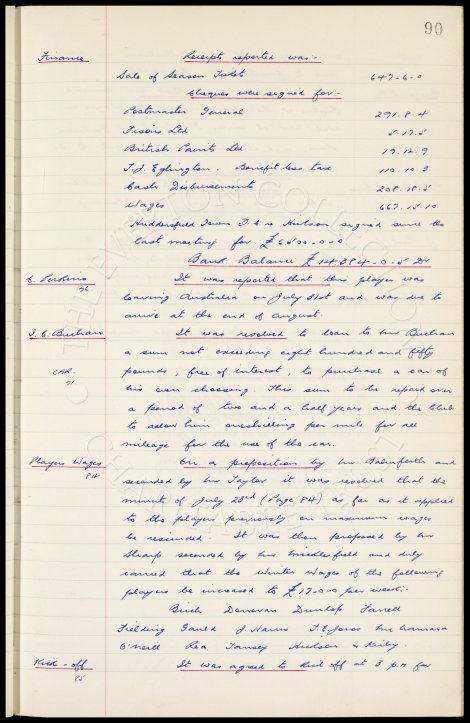 90
Finance Receipts reported was:-
Sale of Season Tickets 647-6-0
Cheques were signed for-
Postmaster General 291.8.4
Fisons Ltd 5.17.5
British Paints Ltd 19.12.9
T.J. Eglington. Benefit less tax 110.10.3
Cash Disbursements 208.18.5
Wages 667.15.10
Huddersfield Town F.C. re Hickson signed since the
last meeting for £6500-0-0
Bank Balance £14384-0-5 Dr
It was reported that this player was
76 leaving Australia on July 31st and was due to
arrive at the end of August.
T.E. Buchan It was resolved to loan to Mr Buchan
a sum not exceeding eight hundred and fifty
CAR. pounds, free of interest, to purchase a car of
71 his own choosing. This sum to be repaid over
a period of two and a half years and the Club
to allow him one shilling per mile for all
mileage for the use of the car.
Players Wages On a proposition by Mr
84 seconded by Mr Taylor it was resolved that the
minute of July 28rd (Page 84) as far as it applied
to the players previously on maximum wages
be rescinded. It was then proposed by Mr
Sharp seconded by Mr Micklesfield and duly
carried that the Winter Wages of the following
players be increased to £17-0-0 per week:-
Birch Donovan Dunlop Farrell
Fielding Gauld J. Harris T.E. Jones McNamara
O'Neill Rea Tansey Hickson & Kirby.
Kick-off It was agreed to kick off at 3 p.m for
85
THE EVERTON COLLECTION